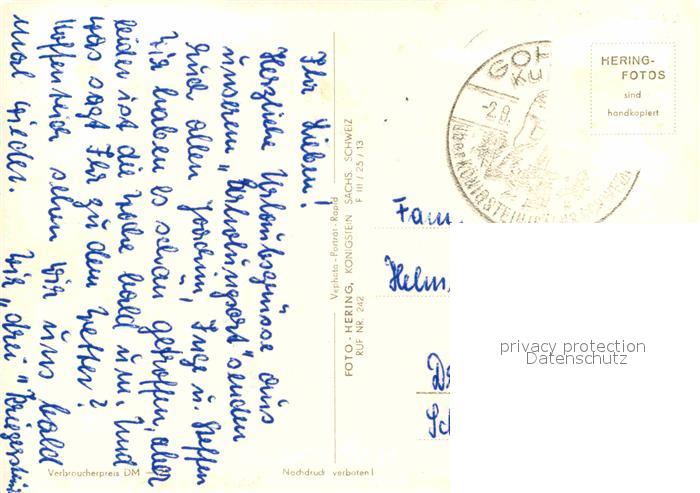 Ihr Lieben!
Herzliche Urlaubsgrüsse aus
unserem „Erholungsort" senden
Euch allen Joachim, Inge u. Steffen
Wir haben es schön getroffen, aber
leider ist die Woche bald um. Und
was sagt Ihr zu dem Wetter?
Hoffentlich sehen wir uns bald
mal wieder.
Wir „drei"
Verbraucherpreis DM
Nachdruck verboten!
Vephota - Porträt - Rapid
FOTO - HERING, KÖNIGSTEIN SÄCHS. SCHWEIZ
RUF NR. 242
F III / 25 / 13
GOH
Ku
-2.8.
über KÖNIGSTEIN
HERING-
FOTOS
sind
handkopiert
Fam
Helm
privacy protection
Datenschutz